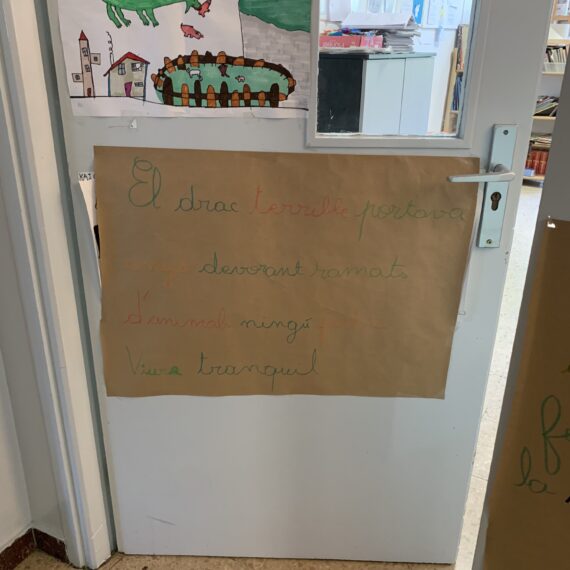 El drac terrible portava
anys devorant ramats
d'animals ningú podia
Viure tranquil
la